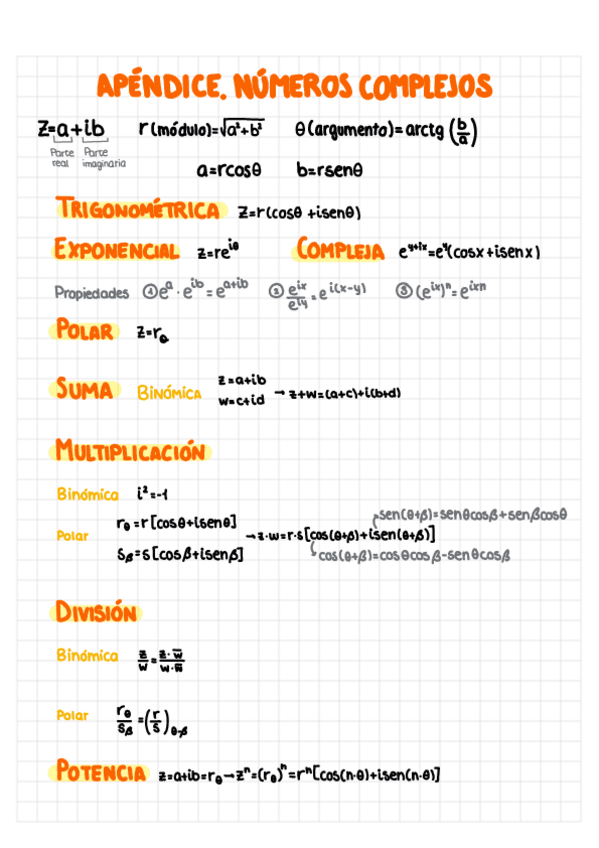 APÉNDICE. NÚMEROS COMPLEJOS
z=a+ib r(módulo)=√a²+b² θ(argumento)=arctg (b/a)
Parte real Parte imaginaria
a=rcosθ b=rsenθ
TRIGONOMÉTRICA z=r(cosθ+isenθ)
EXPONENCIAL z=re^iθ COMPLEJA e^y+ix=e^y(cosx+isenx)
Propiedades ①e^a·e^ib=e^a+ib ②e^ix/e^iy=e^i(x-y) ③(e^ix)^n=e^ixn
POLAR z=r_θ
SUMA BINÓMICA z=a+ib w=c+id → z+w=(a+c)+i(b+d)
MULTIPLICACIÓN
Binómica i²=-1
Polar r_θ=r[cosθ+isenθ] s_β=s[cosβ+isenβ] →z·w=r·s[cos(θ+β)+isen(θ+β)]
sen(θ+β)=senθcosβ+senβcosθ
cos(θ+β)=cosθcosβ-senθcosβ
DIVISIÓN
Binómica z/w=z·w̅/w·w̅
Polar r_θ/s_β=(r/s)_θ-β
POTENCIA z=a+ib=r_θ→z^n=(r_θ)^n=r^n[cos(n·θ)+isen(n·θ)]